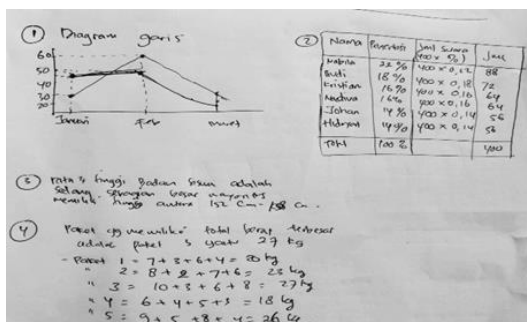 ① Diagram garis
60
50
40
30
20
Januari Feb maret
② Nama Persentasi Jml suara (400 x %) Jml
22 % 400 x 0,22 88
Budi 18 % 400 x 0,18 72
Kristian 16% 400 x 0,16 64
16% 400 x 0,16 64
Johan 14 % 400 x 0,14 56
Hidayat 14 % 400 x 0,14 56
Total 100 % 400
③ rata² tinggi Badan siswa adalah
sedang. sebagian besar mayoritas
memiliki tinggi antara 152 cm - 158 cm.
④ Paket yg memiliki total berat terbesar
adalah paket 3 yaitu 27 kg
- Paket 1 = 7 + 3 + 6 + 4 = 20 kg
" 2 = 8 + 2 + 7 + 6 = 23 kg
" 3 = 10 + 3 + 6 + 8 = 27 kg
" 4 = 6 + 4 + 5 + 3 = 18 kg
" 5 = 9 + 5 + 8 + 4 = 26 kg